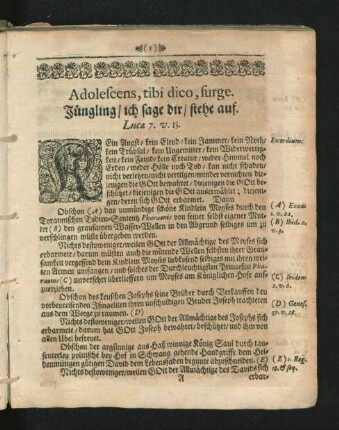 (1)
Adolescens, tibi dico, surge.
Jüngling / ich sage dir / stehe auf.
Lucæ 7. v. 15.
KEin Angst / kein Elend / kein Jammer / kein Noth /
kein Trübsal / kein Ungewitter / kein Widerwertig-
keit / kein Feind / kein Creatur / weder Himmel noch
Erden / weder Hölle noch Tod / kan nicht schaden /
nicht verletzen / nicht vertilgen / minder vernichten die-
jenigen die GOtt bewahret / diejenigen die GOtt be-
schützet / diejenigen die GOtt auserwählet / diejeni-
gen / deren sich GOtt erbarmet. Dann
Exordium:
Obschon (A) das unmündige schöne Kindlein Moyses durch den
Tyrannischen Pharaonis von seiner selbst eigener Mut-
ter (B) den grausamen Wasser-Wellen in den Abgrund seidiges um zu
verschlingen müste übergeben werden.
(A) Exodi
1. v. 22.
(B) Ibid. 2.
v. 3.
Nichts destoweniger / weilen GOtt der Allmächtige des Moyses sich
erbarmete / darum müsten auch die wütende Wellen selbsten ihrer Grau-
samkeit vergessend dem Kindlein Moyses liebkosend seidiges mit ihren wei-
ten Armen umfangen / und solches der Durchleuchtigsten Princeßin Pha-
raonis (C) unversehrt überliefern um Moyses am Königlichen Hofe auf-
zuerziehen.
(C) Ibidem
2. v. 6.
Obschon des keuschen Josephs seine Brüder durch Verkauffen den
vorbeyreisenden Ismaeliten ihren unschuldigen Bruder Joseph trachteten
aus dem Weege zu raumen. (D)
(D) Genes.
37. v. 28.
Nichts destoweniger / weilen GOtt der Allmächtige des Josephs sich
erbarmete / darum hat GOtt Joseph bewahret / beschützet / und ihm von
allen Ubel befreyet.
Obschon der argsinnige aus Haß winnige König Saul durch tau-
senterley politische bey Hof in Schwang gehende Handgriffe dem Hel-
denmütigen gütigen David dem Lebensfaden begunte abzuschneiden. (E)
(E) 1. Reg.
18. & seq.
Nichts destoweniger / weilen GOtt der Allmächtige des Davids sich
A
erbar-